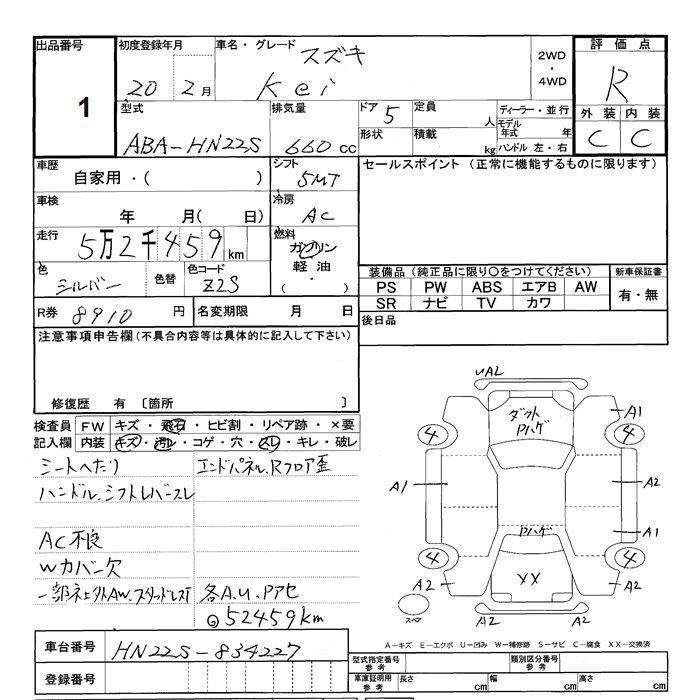 出品番号
1
初度登録年月
20 2月
車名・グレード
スズキ
Kei
2WD
・
4WD
評価点
R
外装 内装
C C
型式
ABA-HN22S
排気量
660 cc
ドア 5
形状
定員 人
積載 kg
ディーラー・並行
モデル年式 年
ハンドル 左・右
車歴
自家用・( )
シフト
5MT
セールスポイント (正常に機能するものに限ります)
車検
年 月( 日)
冷房
AC
走行
5万2千459km
燃料
ガソリン
軽油
( ・ )
色
シルバー
色替
色コード
Z2S
装備品 (純正品に限り〇をつけてください)
新車保証書
PS PW ABS エアB AW
SR ナビ TV カワ
有・無
R券 8910 円
名変期限 月 日
後日品
注意事項申告欄(不具合内容等は具体的に記入して下さい)
修復歴 有 〔箇所 〕
検査員 FW キズ・飛石・ヒビ割・リペア跡・×要
記入欄 内装 キズ・汚レ・コゲ・穴・スレ・キレ・破レ
シートへたり
エンドパネル、Rフロア歪
ハンドル、シフトレバースレ
AC不良
Wカバー欠
一部ネジ外AW、スタッドレス
各A.U.Pアセ
52459km
車台番号 HN22S-834227
登録番号
UA2
ダクト
Pハゲ
A1
4 4
A1 A2
A1
Pハゲ
4 4
A2 XX A2
スペア
A2 A2
A-キズ E-エクボ U-凹み W-補修跡 S-サビ C-腐食 XX-交換済
型式指定番号
参考
類別区分番号
参考
車庫証明用
参考
長さ cm
幅 cm
高さ cm